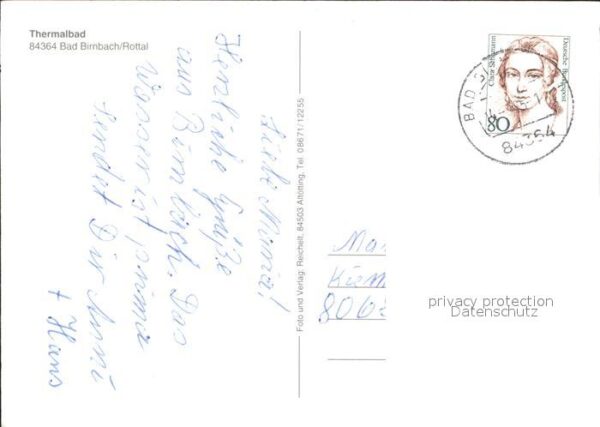 Thermalbad
84364 Bad Birnbach/Rottal
Liebe Maria!
Herzliche Grüße
aus Birnbach. Das
Wasser ist prima
sendet Dir Anni
+ Hans
Foto und Verlag: Reichelt, 84503 Altötting, Tel. 08671/12255
Clara Schumann
Deutsche Bundespost
80
BAD
84364
Ma
806
privacy protection
Datenschutz